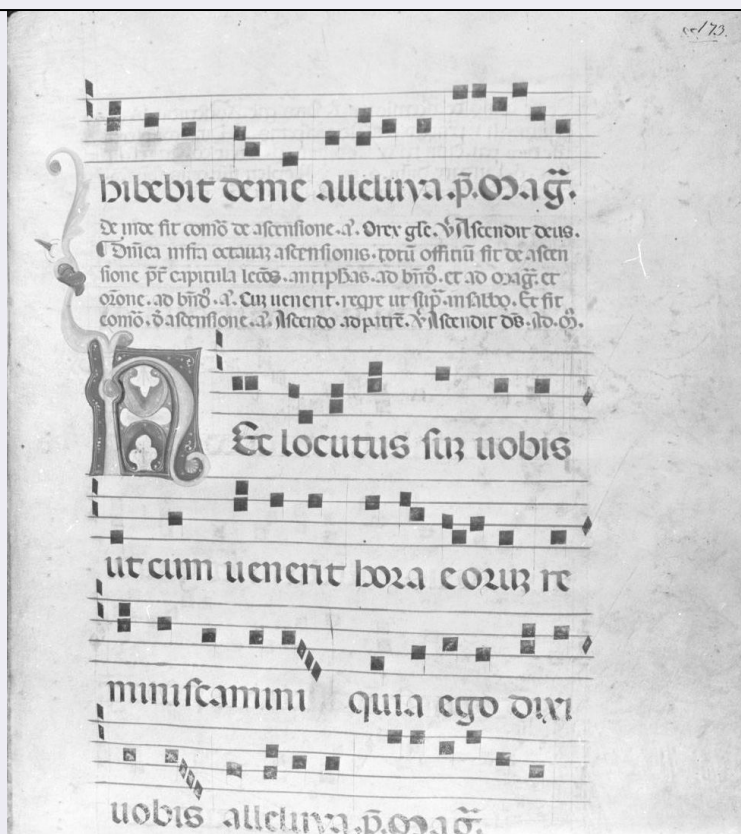 173.
hibebit de me alleluya. p̄. Mag̃.
de inde fit comō de ascensione. a͛. O rex gl̄e. v̄ Ascendit deus.
Dn̄ica infra octauaȝ ascensionis. totū offitiū fit de ascen
sione pr̄t capitula lec̄o̅s. antiph̄as. ad bn̄d̄. et ad mag̃. et
or̄one. ad bn̄d̄. a͛. Cuȝ uenerit. reqr̄e ut sup̄. in sabbo. Et fit
comō. d̄ ascensione. a͛. Ascendo ad patrē. v̄ Ascendit dn̄s. Ad. m̄.
Ec locutus suȝ uobis
ut cum uenerit hora eoruȝ re
miniscamini quia ego dixi
uobis alleluya. p̄. mag̃.